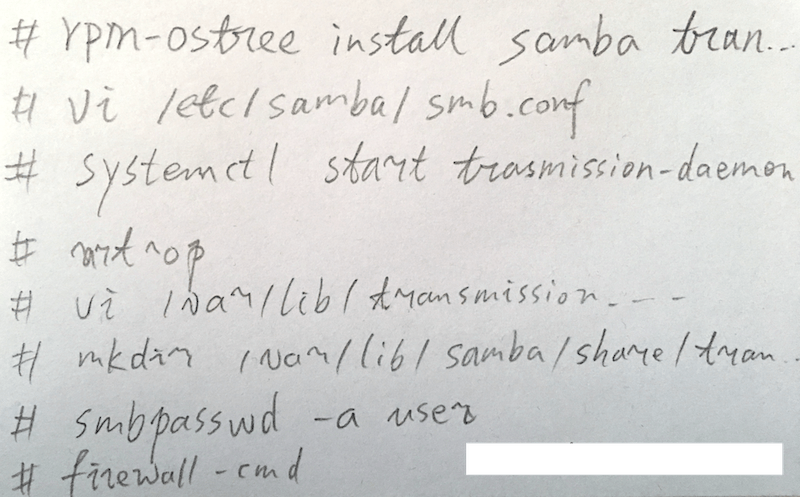 # rpm-ostree install samba tran...
# vi /etc/samba/smb.conf
# systemctl start trasmission-daemon
#
# vi /var/lib/transmission----
# mkdir /var/lib/samba/share/tran..
# smbpasswd -a user
# firewall-cmd